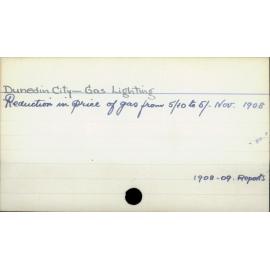 Dunedin City — Gas Lighting
Reduction in price of gas from 5/10 to 5/- Nov. 1908
1908-09. Reports